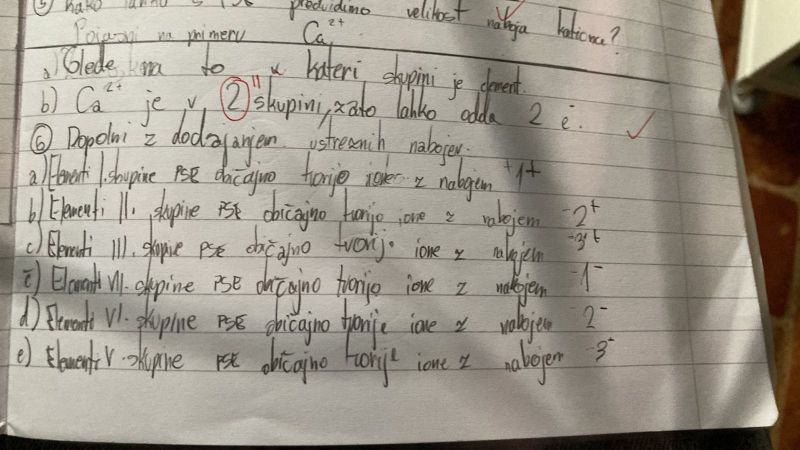 5) kako lahko s PSE predvidimo velikost naboja kationa?
Pojasni na primeru Ca²⁺
a) Glede na to v kateri skupini je element.
b) Ca²⁺ je v 2" skupini, zato lahko odda 2 e⁻.
6) Dopolni z dodajanjem ustreznih nabojev.
a) Elementi I. skupine PSE običajno tvorijo ione z nabojem 1+
b) Elementi II. skupine PSE običajno tvorijo ione z nabojem 2+
c) Elementi III. skupine PSE običajno tvorijo ione z nabojem 3+
č) Elementi VII. skupine PSE običajno tvorijo ione z nabojem 1-
d) Elementi VI. skupine PSE običajno tvorijo ione z nabojem 2-
e) Elementi V. skupine PSE običajno tvorije ione z nabojem 3-